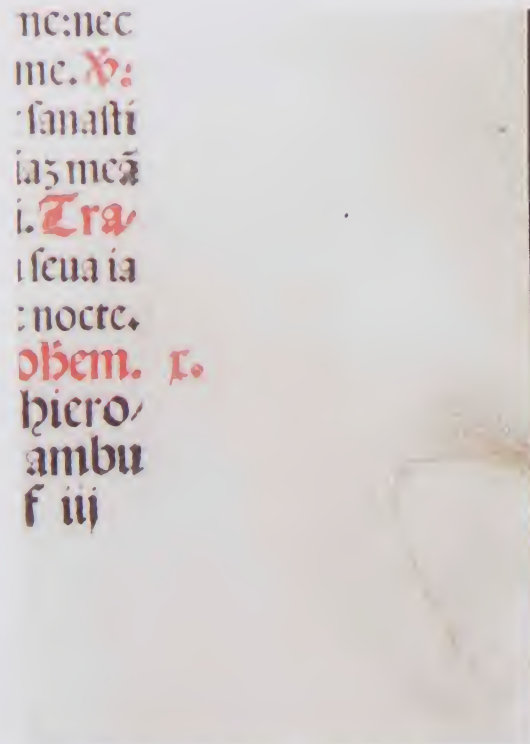 ne:nec
me. ℣:
ſanaſti
iaʒ meã
i. Tra⸗
ſeua ia
nocte.
ohem. x.
hiero⸗
ambu
f iij